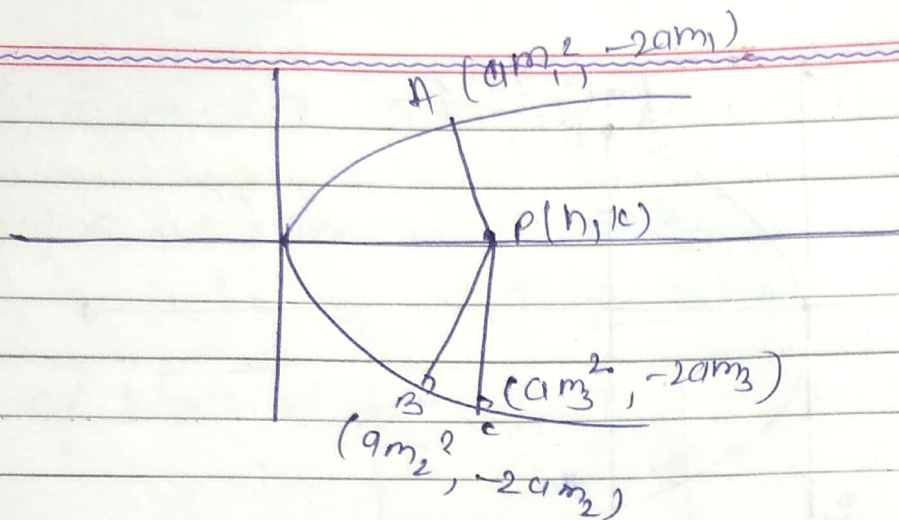 A (am₁², -2am₁)
P(h, k)
B
C (am₃², -2am₃)
(am₂², -2am₂)